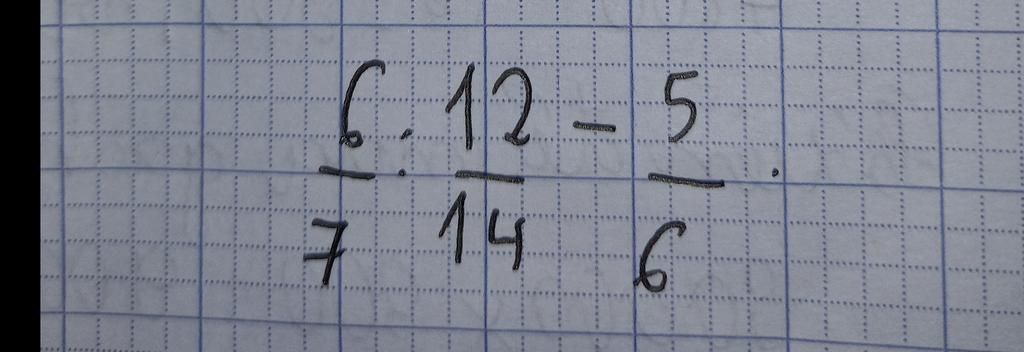 6/7 : 12/14 - 5/6 .